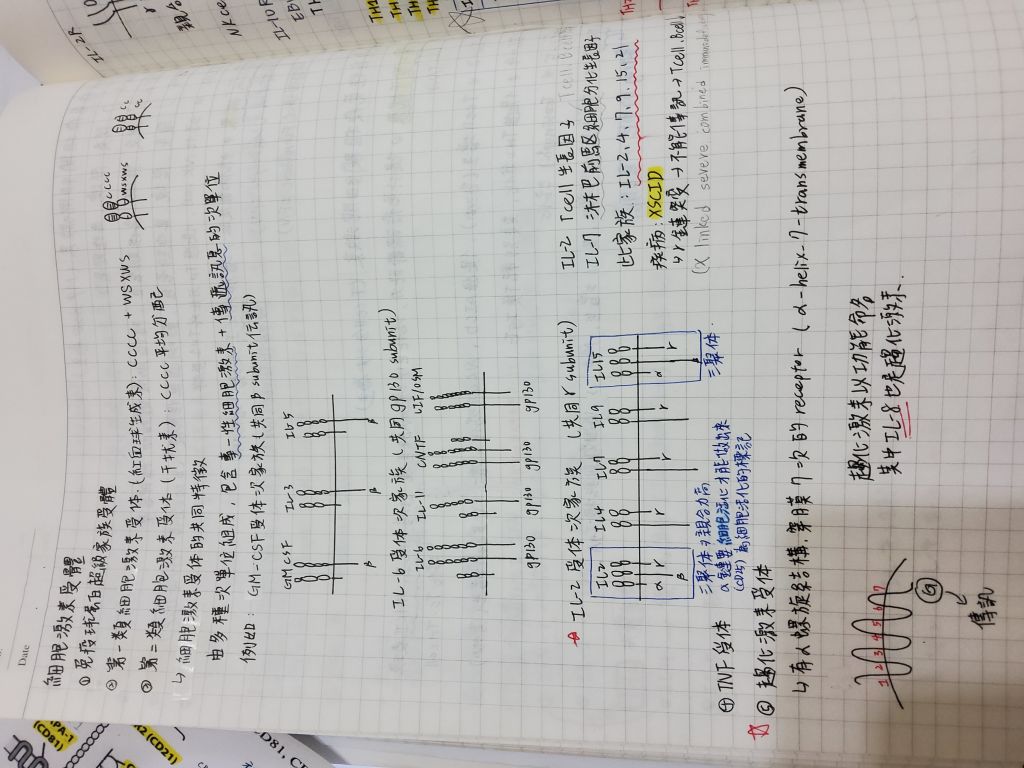 Date
細胞激素受體
① 免疫球蛋白超級家族受體
② 第一類細胞激素受体 (紅血球生成素): CCCC + WSXWS
③ 第二類細胞激素受体 (干扰素): CCCC 平均分配
CCCC
WSXWS
CC
CC
↳ 細胞激素受体的共同特徵
由多種次單位組成, 包含專一性細胞激素 + 傳遞訊息的次單位
例如: GM-CSF受体次家族 (共同β subunit 伝訊)
GMCSF IL3 IL5
β β β
IL-6 受体次家族 (共同 gp130 subunit)
IL-6 IL-11 CNTF LIF/OSM
gp130 gp130 gp130 gp130
☆ IL-2 受体次家族 (共同 γ subunit)
IL2 IL4 IL7 IL9 IL15
α γ β γ γ γ α β γ
三聚体
三聚体→親合力高
α鏈要細胞活化才能做出來
(CD25) 為細胞活化的標記
IL-2 Tcell 生長因子
IL-7 淋巴前驅細胞分化生長因子
此家族: IL-2, 4, 7, 9, 15, 21
疾病: XSCID
↳ γ鏈突變 → 不能傳訊 → Tcell. Bcell
(X linked severe combined immunodeficiency)
④ TNF受体
☆ ⑤ 趨化激素受体
↳ 有α螺旋結構, 穿膜7次的 receptor (α-helix-7-transmembrane)
1 2 3 4 5 6 7
G
傳訊
趨化激素以功能命名
其中IL8也是趨化激素.